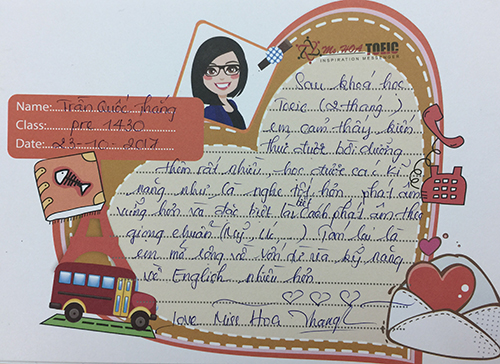 Ms. HOA TOEIC
INSPIRATION MESSENGER
Name: Trần Quốc Thắng
Class: pre 1430
Date: 23-10-2017
Sau khoá học
Toeic (2 tháng...)
em cảm thấy kiến
thức được bồi dưỡng
thêm rất nhiều, học được các kĩ
năng như là nghe tốt hơn, phát âm
vững hơn và đặc biệt là biết cách phát âm theo
giọng chuẩn (Mỹ, Úc,...). Tóm lại là
em mở rộng về vốn từ và kỹ năng
về English nhiều hơn
love Miss Hoa Thang